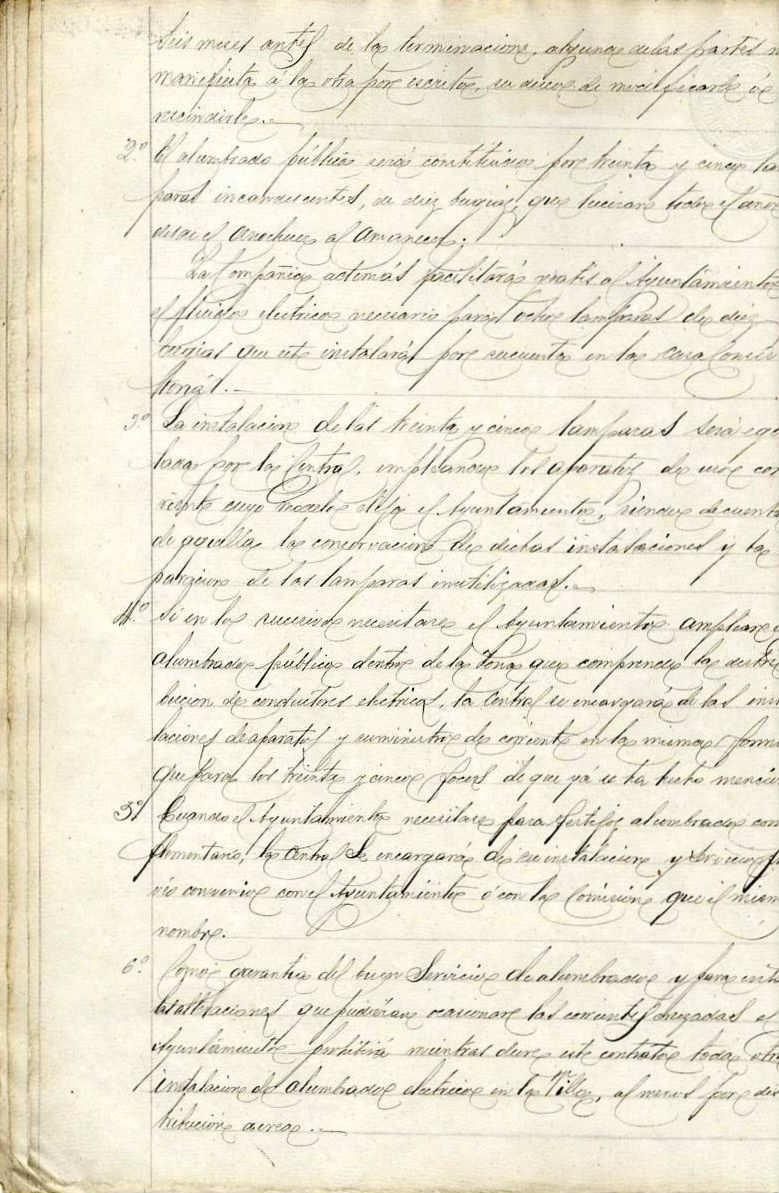 Seis meses antes de la terminacion, alguna de las partes n
manifiesta á la otra por escrito, su deseo de modificarlo ó
rescindirlo.
2.º El alumbrado público será constituido por treinta y cinco lam
paras incandescentes, de diez bugias, que luciran todo el año
desde el anochecer al amanecer.
La Compañia además facilitará gratis al Ayuntamiento
el fluido electrico necesario para ocho lamparas de diez
bugias que este instalará por su cuenta en la casa Consis
torial.
3.º La instalacion de las treinta y cinco lamparas será eje
tada por la Central, empleando los aparatos de uso cor
riente cuyo modelo elija el Ayuntamiento, siendo de cuenta
de aquella la conservacion de dichas instalaciones y la
paracion de las lamparas inutilizadas.
4.º Si en lo sucesivo necesitare el Ayuntamiento ampliar e
alumbrado público dentro de la zona que comprende la distri
bucion de conductores electricos, la Central se encargará de las ins
laciones de aparatos y suministro de corriente en la misma forma
que para los treinta y cinco focos de que yá se ha hecho menció
5.º Cuando el Ayuntamiento necesitare para festejos alumbrado com
plementario, la Central se encargará de su instalacion y servicio p
vio convenio con el Ayuntamiento ó con la Comision que el mism
nombre.
6.º Como garantia del buen servicio de alumbrado y para evit
las alteraciones que pudieran ocasionar las corrientes cruzadas el
Ayuntamiento prohibirá mientras dure este contrato toda otra
instalacion de alumbrado electrico en la Villa, al menos por dis
tribucion aerea.